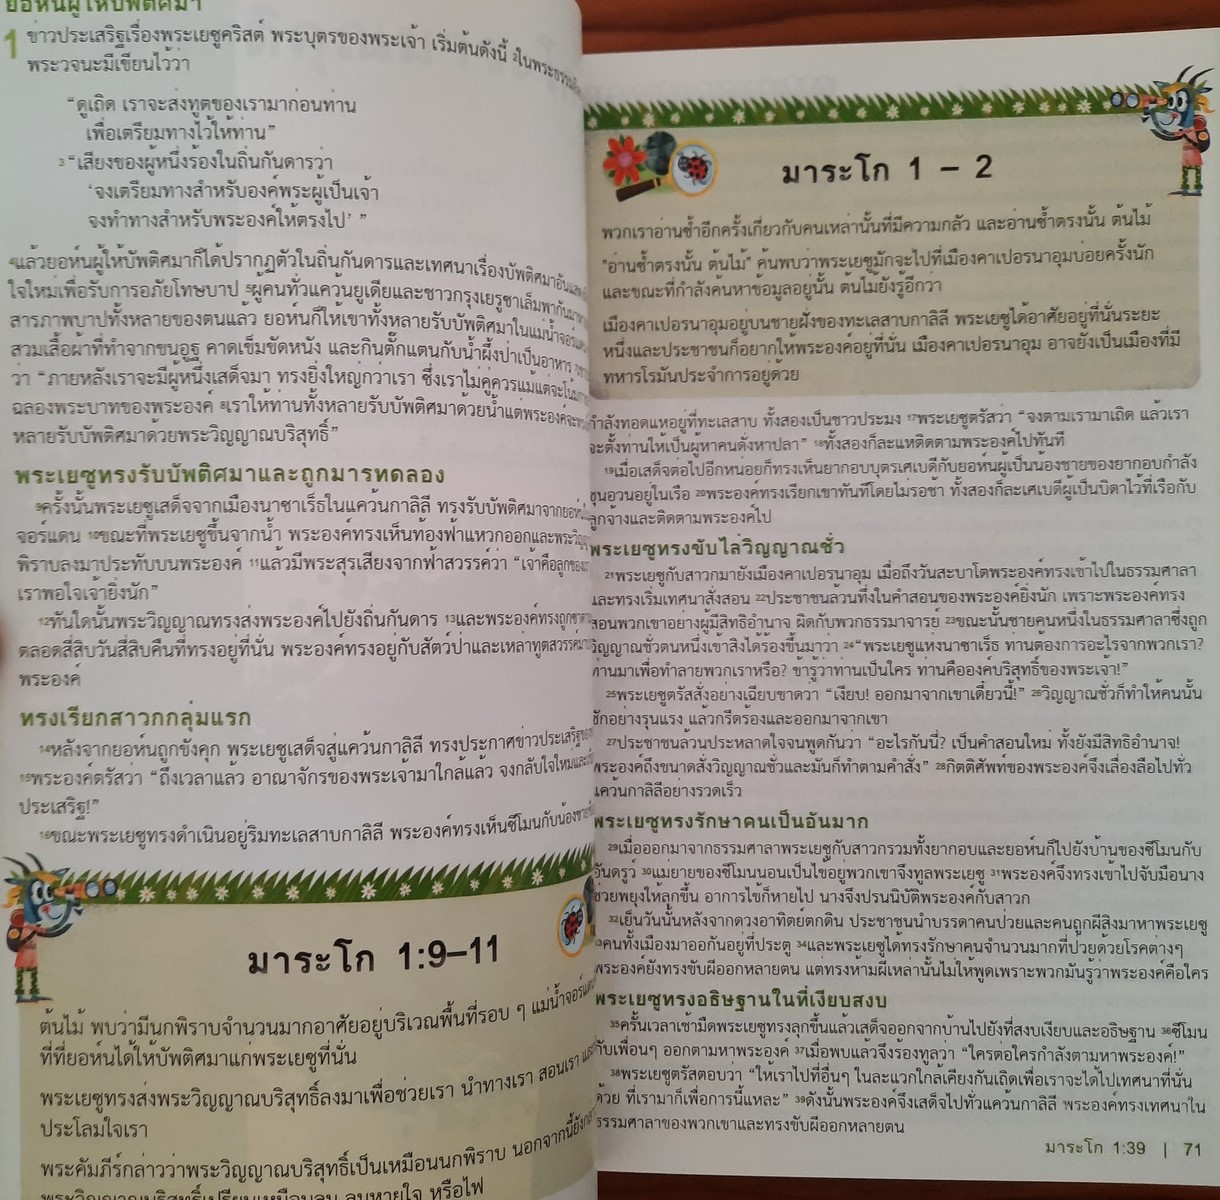 ยอห์นผู้ให้บัพติศมา
1 ข่าวประเสริฐเรื่องพระเยซูคริสต์ พระบุตรของพระเจ้า เริ่มต้นดังนี้ 2ในพระธรรม
พระวจนะมีเขียนไว้ว่า
“ดูเถิด เราจะส่งทูตของเรามาก่อนท่าน
เพื่อเตรียมทางไว้ให้ท่าน”
3 “เสียงของผู้หนึ่งร้องในถิ่นกันดารว่า
‘จงเตรียมทางสำหรับองค์พระผู้เป็นเจ้า
จงทำทางสำหรับพระองค์ให้ตรงไป’ ”
4แล้วยอห์นผู้ให้บัพติศมาก็ได้ปรากฏตัวในถิ่นกันดารและเทศนาเรื่องบัพติศมาอัน
ใจใหม่เพื่อรับการอภัยโทษบาป 5ผู้คนทั่วแคว้นยูเดียและชาวกรุงเยรูซาเล็มพากัน
สารภาพบาปทั้งหลายของตนแล้ว ยอห์นก็ให้เขาทั้งหลายรับบัพติศมาในแม่น้ำจอร์แดน
สวมเสื้อผ้าที่ทำจากขนอูฐ คาดเข็มขัดหนัง และกินตั๊กแตนกับน้ำผึ้งป่าเป็นอาหาร
ว่า “ภายหลังเราจะมีผู้หนึ่งเสด็จมา ทรงยิ่งใหญ่กว่าเรา ซึ่งเราไม่คู่ควรแม้แต่จะโน้ม
ฉลองพระบาทของพระองค์ 8เราให้ท่านทั้งหลายรับบัพติศมาด้วยน้ำแต่พระองค์จะ
หลายรับบัพติศมาด้วยพระวิญญาณบริสุทธิ์”
พระเยซูทรงรับบัพติศมาและถูกมารทดลอง
9ครั้งนั้นพระเยซูเสด็จจากเมืองนาซาเร็ธในแคว้นกาลิลี ทรงรับบัพติศมาจากยอห์น
จอร์แดน 10ขณะที่พระเยซูขึ้นจากน้ำ พระองค์ทรงเห็นท้องฟ้าแหวกออกและพระวิญญาณ
พิราบลงมาประทับบนพระองค์ 11แล้วมีพระสุรเสียงจากฟ้าสวรรค์ว่า “เจ้าคือลูกของ
เราพอใจเจ้ายิ่งนัก”
12ทันใดนั้นพระวิญญาณทรงส่งพระองค์ไปยังถิ่นกันดาร 13และพระองค์ทรงถูกซาตาน
ตลอดสี่สิบวันสี่สิบคืนที่ทรงอยู่ที่นั่น พระองค์ทรงอยู่กับสัตว์ป่าและเหล่าทูตสวรรค์มา
พระองค์
ทรงเรียกสาวกกลุ่มแรก
14หลังจากยอห์นถูกขังคุก พระเยซูเสด็จสู่แคว้นกาลิลี ทรงประกาศข่าวประเสริฐของ
15พระองค์ตรัสว่า “ถึงเวลาแล้ว อาณาจักรของพระเจ้ามาใกล้แล้ว จงกลับใจใหม่และ
ประเสริฐ!”
16ขณะพระเยซูทรงดำเนินอยู่ริมทะเลสาบกาลิลี พระองค์ทรงเห็นซีโมนกับน้องชาย
มาระโก 1:9–11
ต้นไม้ พบว่ามีนกพิราบจำนวนมากอาศัยอยู่บริเวณพื้นที่รอบ ๆ แม่น้ำจอร์แดน
ที่ที่ยอห์นได้ให้บัพติศมาแก่พระเยซูที่นั่น
พระเยซูทรงส่งพระวิญญาณบริสุทธิ์ลงมาเพื่อช่วยเรา นำทางเรา สอนเรา และ
ประโลมใจเรา
พระคัมภีร์กล่าวว่าพระวิญญาณบริสุทธิ์เป็นเหมือนนกพิราบ นอกจากนี้ยัง
พระวิญญาณบริสุทธิ์เปรียบเหมือนลม ลมหายใจ หรือไฟ
มาระโก 1 – 2
พวกเราอ่านซ้ำอีกครั้งเกี่ยวกับคนเหล่านั้นที่มีความกลัว และอ่านซ้ำตรงนั้น ต้นไม้
"อ่านซ้ำตรงนั้น ต้นไม้" ค้นพบว่าพระเยซูมักจะไปที่เมืองคาเปอรนาอุมบ่อยครั้งนัก
และขณะที่กำลังค้นหาข้อมูลอยู่นั้น ต้นไม้ยังรู้อีกว่า
เมืองคาเปอรนาอุมอยู่บนชายฝั่งของทะเลสาบกาลิลี พระเยซูได้อาศัยอยู่ที่นั่นระยะ
หนึ่งและประชาชนก็อยากให้พระองค์อยู่ที่นั่น เมืองคาเปอรนาอุม อาจยังเป็นเมืองที่มี
ทหารโรมันประจำการอยู่ด้วย
กำลังทอดแหอยู่ที่ทะเลสาบ ทั้งสองเป็นชาวประมง 17พระเยซูตรัสว่า “จงตามเรามาเถิด แล้วเรา
จะตั้งท่านให้เป็นผู้หาคนดั่งหาปลา” 18ทั้งสองก็ละแหติดตามพระองค์ไปทันที
19เมื่อเสด็จต่อไปอีกหน่อยก็ทรงเห็นยากอบบุตรเศเบดีกับยอห์นผู้เป็นน้องชายของยากอบกำลัง
ชุนอวนอยู่ในเรือ 20พระองค์ทรงเรียกเขาทันทีโดยไม่รอช้า ทั้งสองก็ละเศเบดีผู้เป็นบิดาไว้ที่เรือกับ
ลูกจ้างและติดตามพระองค์ไป
พระเยซูทรงขับไล่วิญญาณชั่ว
21พระเยซูกับสาวกมายังเมืองคาเปอรนาอุม เมื่อถึงวันสะบาโตพระองค์ทรงเข้าไปในธรรมศาลา
และทรงเริ่มเทศนาสั่งสอน 22ประชาชนล้วนทึ่งในคำสอนของพระองค์ยิ่งนัก เพราะพระองค์ทรง
สอนพวกเขาอย่างผู้มีสิทธิอำนาจ ผิดกับพวกธรรมาจารย์ 23ขณะนั้นชายคนหนึ่งในธรรมศาลาซึ่งถูก
วิญญาณชั่วตนหนึ่งเข้าสิงได้ร้องขึ้นมาว่า 24“พระเยซูแห่งนาซาเร็ธ ท่านต้องการอะไรจากพวกเรา?
ท่านมาเพื่อทำลายพวกเราหรือ? ข้ารู้ว่าท่านเป็นใคร ท่านคือองค์บริสุทธิ์ของพระเจ้า!”
25พระเยซูตรัสสั่งอย่างเฉียบขาดว่า “เงียบ! ออกมาจากเขาเดี๋ยวนี้!” 26วิญญาณชั่วก็ทำให้คนนั้น
ชักอย่างรุนแรง แล้วกรีดร้องและออกมาจากเขา
27ประชาชนล้วนประหลาดใจจนพูดกันว่า “อะไรกันนี่? เป็นคำสอนใหม่ ทั้งยังมีสิทธิอำนาจ!
พระองค์ถึงขนาดสั่งวิญญาณชั่วและมันก็ทำตามคำสั่ง” 28กิตติศัพท์ของพระองค์จึงเลื่องลือไปทั่ว
แคว้นกาลิลีอย่างรวดเร็ว
พระเยซูทรงรักษาคนเป็นอันมาก
29เมื่อออกมาจากธรรมศาลาพระเยซูกับสาวกรวมทั้งยากอบและยอห์นก็ไปยังบ้านของซีโมนกับ
อันดรูว์ 30แม่ยายของซีโมนนอนเป็นไข้อยู่พวกเขาจึงทูลพระเยซู 31พระองค์จึงทรงเข้าไปจับมือนาง
ช่วยพยุงให้ลุกขึ้น อาการไข้ก็หายไป นางจึงปรนนิบัติพระองค์กับสาวก
32เย็นวันนั้นหลังจากดวงอาทิตย์ตกดิน ประชาชนนำบรรดาคนป่วยและคนถูกผีสิงมาหาพระเยซู
33คนทั้งเมืองมาออกันอยู่ที่ประตู 34และพระเยซูได้ทรงรักษาคนจำนวนมากที่ป่วยด้วยโรคต่างๆ
พระองค์ยังทรงขับผีออกหลายตน แต่ทรงห้ามผีเหล่านั้นไม่ให้พูดเพราะพวกมันรู้ว่าพระองค์คือใคร
พระเยซูทรงอธิษฐานในที่เงียบสงบ
35ครั้นเวลาเช้ามืดพระเยซูทรงลุกขึ้นแล้วเสด็จออกจากบ้านไปยังที่สงบเงียบและอธิษฐาน 36ซีโมน
กับเพื่อนๆ ออกตามหาพระองค์ 37เมื่อพบแล้วจึงร้องทูลว่า “ใครต่อใครกำลังตามหาพระองค์!”
38พระเยซูตรัสตอบว่า “ให้เราไปที่อื่นๆ ในละแวกใกล้เคียงกันเถิดเพื่อเราจะได้ไปเทศนาที่นั่น
ด้วย ที่เรามาก็เพื่อการนี้แหละ” 39ดังนั้นพระองค์จึงเสด็จไปทั่วแคว้นกาลิลี พระองค์ทรงเทศนาใน
ธรรมศาลาของพวกเขาและทรงขับผีออกหลายตน
มาระโก 1:39 | 71